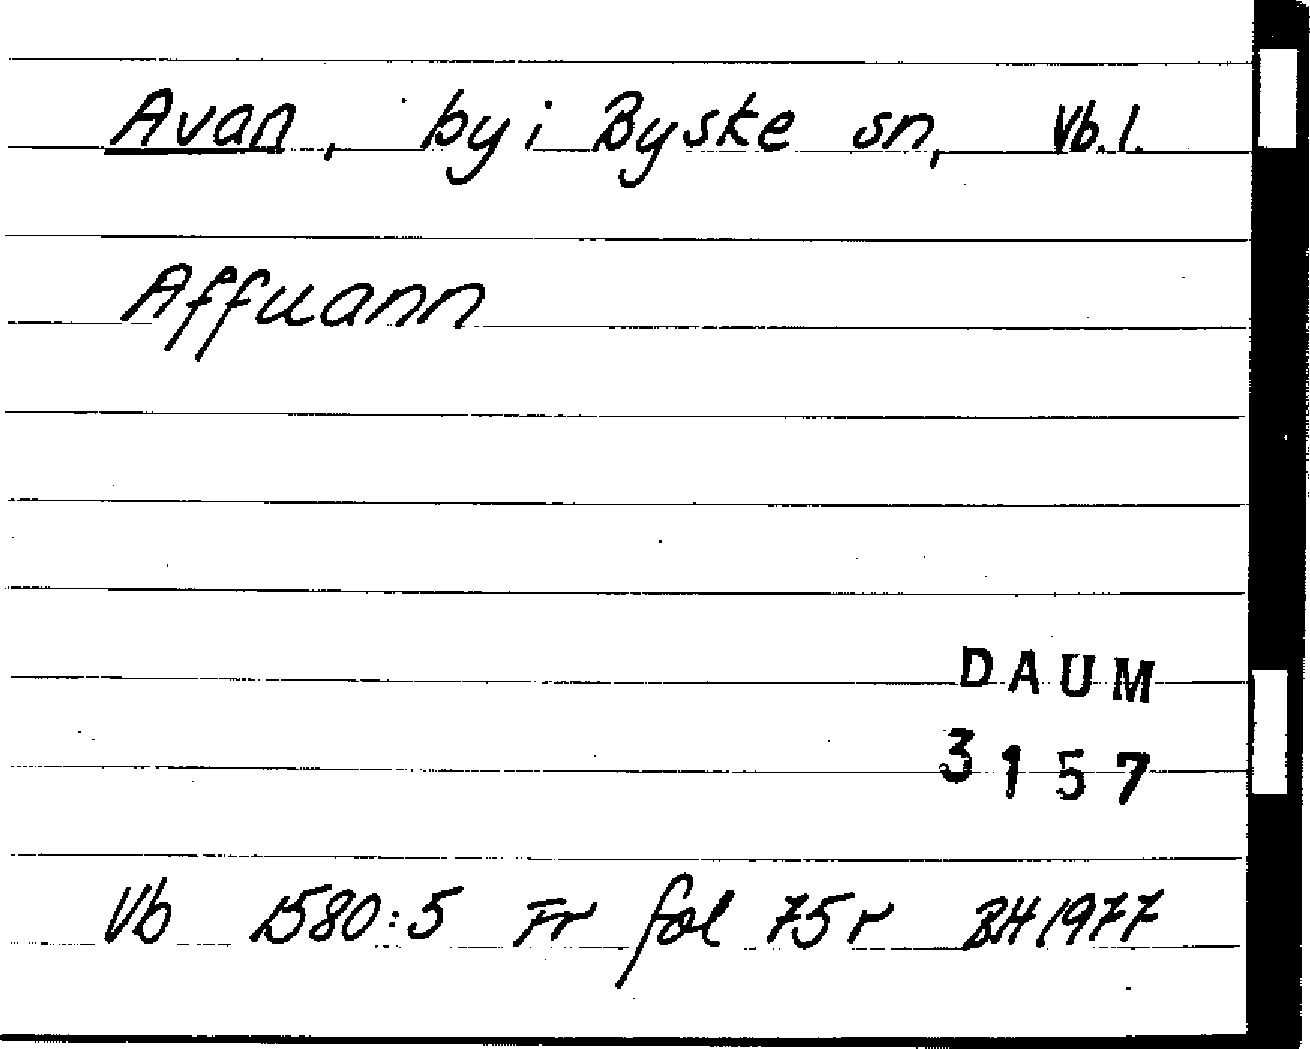 Avan, by i Byske sn, Vb. l.
Affuann
DAUM
3157
Vb 1580:5 Fr fol 75r BH 1977